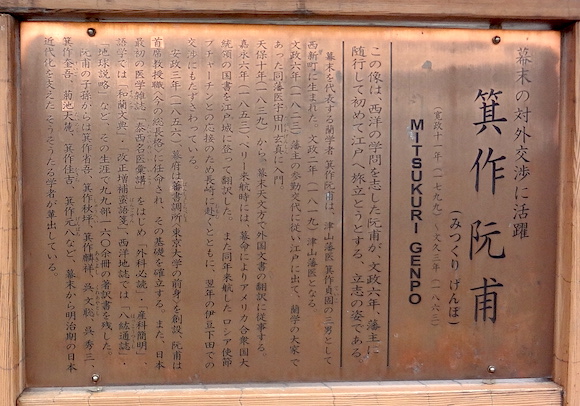 幕末の対外交渉に活躍
箕作阮甫
(みつくり げんぽ)
(寛政十一年(一七九九)~文久三年(一八六三)
MITSUKURI GENPO
この像は、西洋の学問を志した阮甫が、文政六年、藩主に
随行して初めて江戸へ旅立とうとする、立志の姿である。
幕末を代表する蘭学者箕作阮甫は、津山藩医箕作貞固の三男として
西新町に生まれた。文政二年(一八一九)津山藩医となる。
文政六年(一八二三)藩主の参勤交代に従い江戸に出て、蘭学の大家で
あった同藩医宇田川玄真に入門。
天保十年(一八三九)から、幕末天文方で外国文書の翻訳に従事する。
嘉永六年(一八五三)ペリー来航時には幕命によりアメリカ合衆国大
統領の国書を江戸城に登って翻訳した。また同年来航したロシア使節
プチャーチンとの応接のため長崎に赴くとともに、翌年の伊豆下田での
交渉にもたずさわっている。
安政三年(一八五六)幕府は蕃書調所(東京大学の前身)を創設、阮甫は
首席教授職(今の総長格)に任命され、その基礎を確立する。また、日本
最初の医学雑誌「泰西名医彙講」をはじめ「外科必読」・「産科簡明」、
語学では「和蘭文典」・「改正増補蛮語箋」、西洋地誌では「八紘通誌」・
「地球説略」など、その生涯で九九部一六〇余冊の著訳書を残した。
阮甫の子孫からは箕作省吾、箕作秋坪、箕作麟祥、呉文聰、呉秀三、
箕作奎吾、菊池大麓、箕作佳吉、箕作元八など、幕末から明治期の日本
近代化を支えたそうそうたる学者が輩出している。